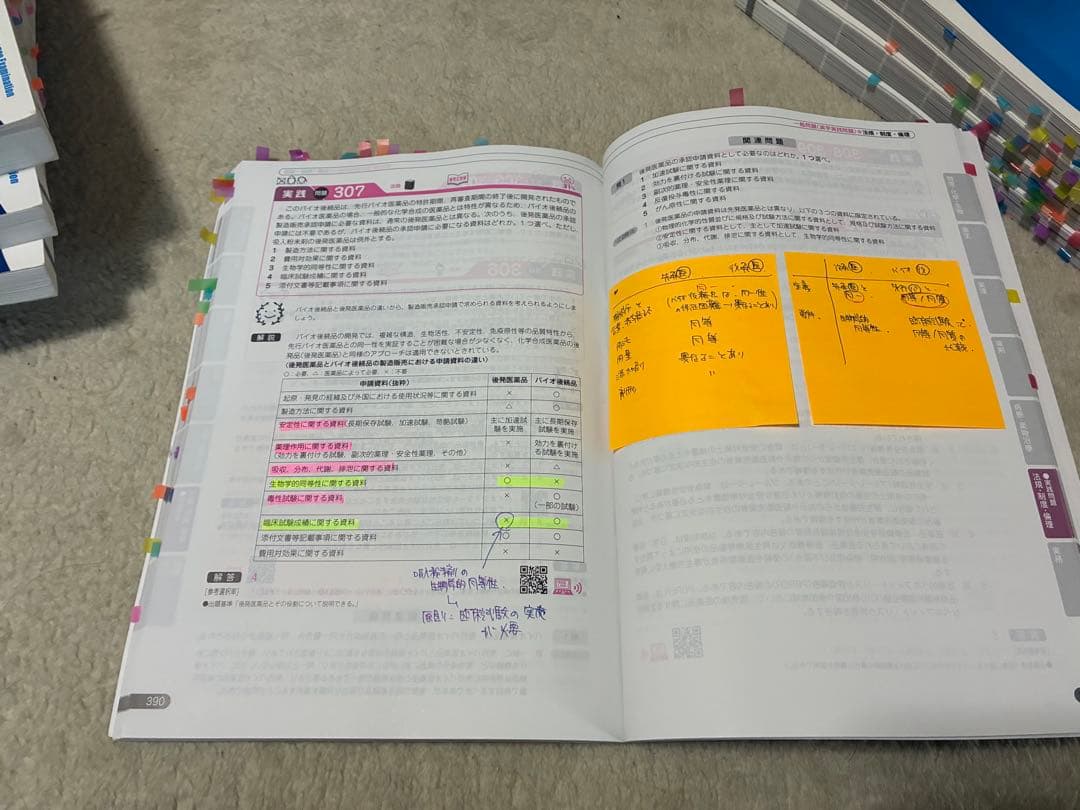 実践 問題 307
このバイオ後続品は、先行バイオ医薬品の特許期間、再審査期間の終了後に開発されたもので
ある。バイオ医薬品の場合、一般的な化学合成の医薬品とは特性が異なるため、バイオ後続品の
製造販売承認申請に必要な資料は、通常の後発医薬品とは異なる。次のうち、後発医薬品の承認
申請には不要であるが、バイオ後続品の承認申請に必要になる資料はどれか。1つ選べ。ただし、
吸入粉末剤の後発医薬品は例外とする。
1 製造方法に関する資料
2 費用対効果に関する資料
3 生物学的同等性に関する資料
4 臨床試験成績に関する資料
5 添付文書等記載事項に関する資料
バイオ後続品と後発医薬品の違いから、製造販売承認申請で求められる資料を考えられるようにしま
しょう。
解説 バイオ後続品の開発では、複雑な構造、生物活性、不安定性、免疫原性等の品質特性から、
先行バイオ医薬品との同一性を実証することが困難な場合が少なくなく、化学合成医薬品の後
発品(後発医薬品)と同様のアプローチは適用できないとされている。
〈後発医薬品とバイオ後続品の製造販売における申請資料の違い〉
○:必要、△:医薬品によって必要、×:不要
申請資料(抜粋) 後発医薬品 バイオ後続品
起原・発見の経緯及び外国における使用状況等に関する資料 × ○
製造方法に関する資料 △ ○
安定性に関する資料(長期保存試験、加速試験、苛酷試験) 主に加速試験を実施 主に長期保存試験を実施
薬理作用に関する資料
(効力を裏付ける試験、副次的薬理・安全性薬理、その他) × 効力を裏付ける試験を実施
吸収、分布、代謝、排泄に関する資料 × △
生物学的同等性に関する資料 ○ ×
毒性試験に関する資料 × ○
(一部の試験)
臨床試験成績に関する資料 × ○
添付文書等記載事項に関する資料 ○ ○
費用対効果に関する資料 × ×
吸入粉末剤の
生物学的同等性
原則に臨床試験の実施
が必要
解答 4
[参考選択率]
●出題基準「後発医薬品とその役割について説明できる。」
390
一般問題(薬学実践問題)●法規・制度・倫理
関連問題
後発医薬品の承認申請資料として必要なのはどれか。1つ選べ。
1 加速試験に関する資料
2 効力を裏付ける試験に関する資料
3 副次的薬理・安全性薬理に関する資料
4 反復投与毒性に関する資料
5 がん原性に関する資料
後発医薬品の申請資料は先発医薬品とは異なり、以下の3つの資料に限定されている。
①物理的化学的性質並びに規格及び試験方法に関する資料として、規格及び試験方法に関する資料
②安定性に関する資料として、主として加速試験に関する資料
③吸収、分布、代謝、排泄に関する資料として、生物学的同等性に関する資料
同一
同等
同等
異なることあり
用法
用量
副作用
生物学的
同等性
臨床試験で
実践問題
法規・制度・倫理
実務